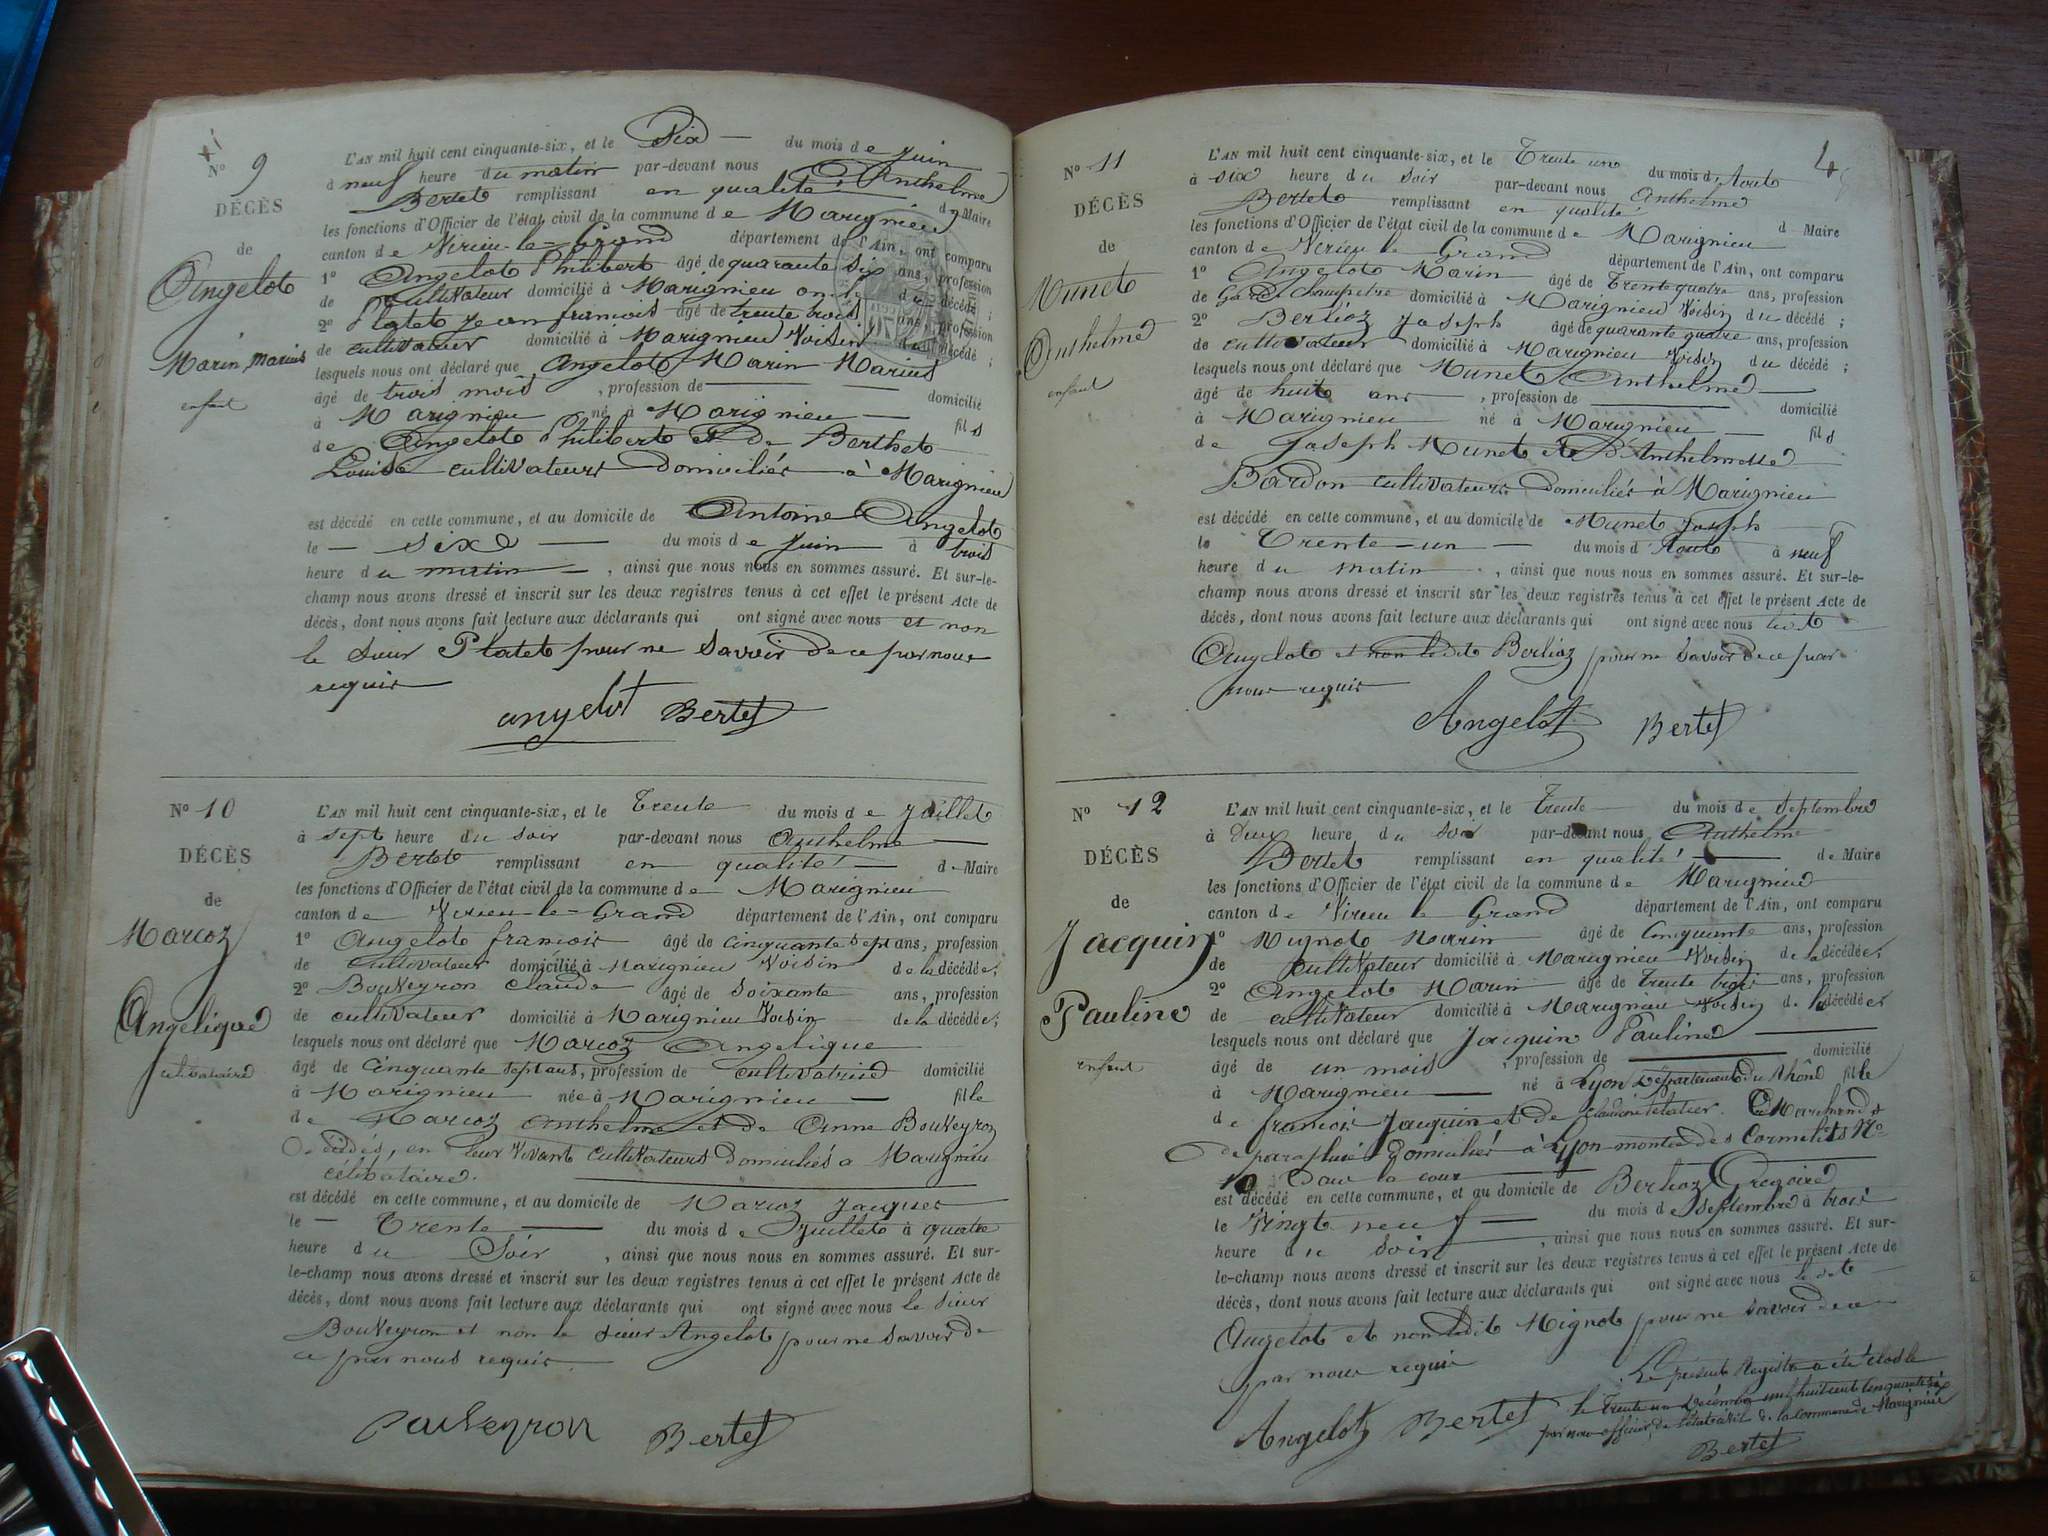 N° 9
DÉCÈS
de
Angelot
Marin, Marius
enfant
L'AN mil huit cent cinquante-six, et le Six du mois de Juin
à neuf heure du matin par-devant nous Anthelme
Bertet remplissant en qualité de Maire
les fonctions d'Officier de l'état civil de la commune de Marignieu
canton de Virieu-le-Grand département de l'Ain, ont comparu
1° Angelot Philibert âgé de quarante six ans, profession
de cultivateur domicilié à Marignieu du décédé ;
2° Platet Jean francois âgé de trente trois ans, profession
de cultivateur domicilié à Marignieu Voisin du décédé ;
lesquels nous ont déclaré que Angelot Marin Marius
âgé de trois mois , profession de domicilié
à Marignieu né à Marignieu fils
de Angelot Philibert et de Berthet
Louise cultivateurs Domiciliés à Marignieu
est décédé en cette commune, et au domicile de Antoine Angelot
le six du mois de Juin à trois
heure du matin , ainsi que nous nous en sommes assuré. Et sur-le-
champ nous avons dressé et inscrit sur les deux registres tenus à cet effet le présent Acte de
décès, dont nous avons fait lecture aux déclarants qui ont signé avec nous et non
le sieur Platet pour ne savoir de ce par nous
requis
angelot Bertet
N° 10
DÉCÈS
de
Marcoz
Angelique
celibataire
L'AN mil huit cent cinquante-six, et le Trente du mois de Juillet
à sept heure du soir par-devant nous Anthelme
Bertet remplissant en qualité de Maire
les fonctions d'Officier de l'état civil de la commune de Marignieu
canton de Virieu-le-Grand département de l'Ain, ont comparu
1° Angelot francois âgé de cinquante sept ans, profession
de cultivateur domicilié à Marignieu Voisin de la décédée;
2° Bouveyron Claude âgé de soixante ans, profession
de cultivateur domicilié à Marignieu Voisin de la décédée;
lesquels nous ont déclaré que Marcoz Angelique
âgé de Cinquante sept ans, profession de cultivatrice domicilié
à Marignieu née à Marignieu fille
de Marcoz Anthelme et de Anne Bouveyron
Décédés, en leur Vivant cultivateurs domiciliés à Marignieu
célibataire.
est décédé en cette commune, et au domicile de Marcoz Jacques
le Trente du mois de Juillet à quatre
heure du Soir , ainsi que nous nous en sommes assuré. Et sur-
le-champ nous avons dressé et inscrit sur les deux registres tenus à cet effet le présent Acte de
décès, dont nous avons fait lecture aux déclarants qui ont signé avec nous le sieur
Bouveyron et non le sieur Angelot pour ne savoir de
ce par nous requis
Bouveyron Bertet
4
N° 11
DÉCÈS
de
Munet
Anthelme
enfant
L'AN mil huit cent cinquante-six, et le Trente un du mois d'Aout
à six heure du soir par-devant nous Anthelme
Bertet remplissant en qualité d Maire
les fonctions d'Officier de l'état civil de la commune de Marignieu
canton de Virieu le Grand département de l'Ain, ont comparu
1° Angelot Marin âgé de Trente quatre ans, profession
de Garde Champetre domicilié à Marignieu Voisin du décédé ;
2° Berlioz Joseph âgé de quarante quatre ans, profession
de cultivateur domicilié à Marignieu Voisin du décédé ;
lesquels nous ont déclaré que Munet Anthelme
âgé de huit ans , profession de domicilié
à Marignieu né à Marignieu fils
de Joseph Munet et D'Anthelmette
Bardon cultivateurs Domiciliés à Marignieu
est décédé en cette commune, et au domicile de Munet Joseph
le Trente-un du mois d'Aout à neuf
heure du matin , ainsi que nous nous en sommes assuré. Et sur-le-
champ nous avons dressé et inscrit sur les deux registres tenus à cet effet le présent Acte de
décès, dont nous avons fait lecture aux déclarants qui ont signé avec nous
Angelot et non ledit Berlioz pour ne savoir de ce par
nous requis
Angelot Bertet
N° 12
DÉCÈS
de
Jacquin
Pauline
enfant
L'AN mil huit cent cinquante-six, et le Trente du mois de Septembre
à Deux heure du soir par-devant nous Anthelme
Bertet remplissant en qualité de Maire
les fonctions d'Officier de l'état civil de la commune de Marignieu
canton de Virieu le Grand département de l'Ain, ont comparu
1° Mignot Marin âgé de Cinquante ans, profession
de cultivateur domicilié à Marignieu Voisin de la décédée;
2° Angelot Marin âgé de trente trois ans, profession
de cultivateur domicilié à Marignieu Voisin de la décédée;
lesquels nous ont déclaré que Jacquin Pauline
âgé de un mois , profession de domicilié
à Marignieu né à Lyon Département du Rhône fille
de francois Jacquin et de Claudine Marchands
de parapluie Domiciliés à Lyon montée des Carmelites N°
10 Dans la cour
est décédé en cette commune, et au domicile de Berlioz Gregoire
le Vingt neuf du mois de Septembre à trois
heure du soir , ainsi que nous nous en sommes assuré. Et sur-
le-champ nous avons dressé et inscrit sur les deux registres tenus à cet effet le présent Acte de
décès, dont nous avons fait lecture aux déclarants qui ont signé avec nous ledit
Angelot et non ledit Mignot pour ne savoir de ce
par nous requis
Le présent Registre a été clos le
le Trente un Décembre mil huit cent cinquante six
par nous officier de l'état civil de la commune de Marignieu
Angelot Bertet
Bertet